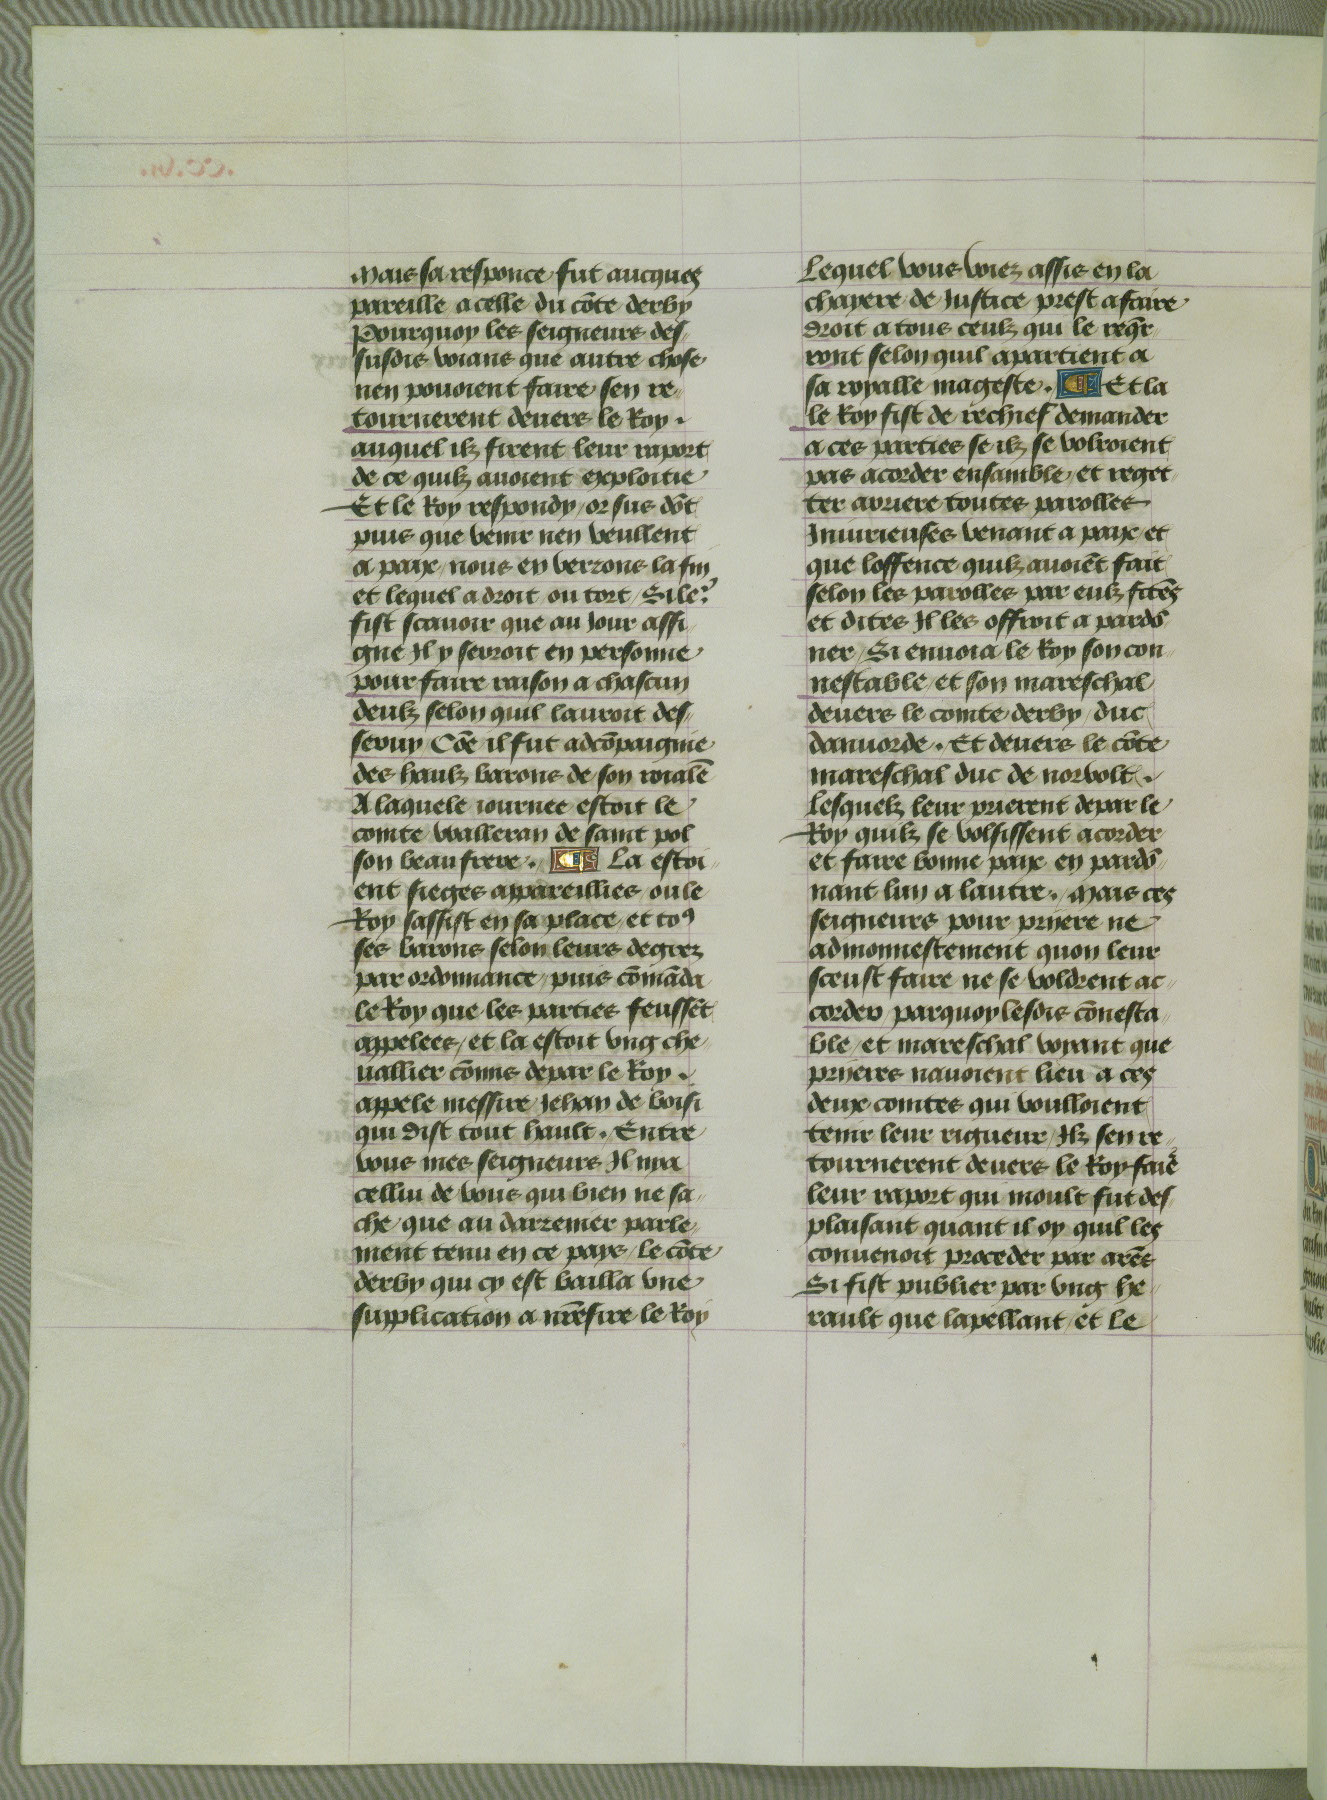 Mais sa responce fut aucques
pareille a celle du cōte derby
Pourquoy les seigneurs des
susdis voians que autre chose
nen pouoient faire sen re
tournerent deuers le Roy .
auquel ilz firent leur raport
de ce quilz auoient exploitie
Et le Roy respondy / or sus dōt
puis que venir nen veullent
a paix / nous en verrons la fin
et lequel a droit ou tort / Si le2
fist scauoir que au Jour assi
gne Il y seroit en personne
pour faire raison a chascun
deulz selon quil lauroit des
seruy Cōe il fut adcōpaignie
des haulz barons de son roialē
A laquele iournee estoit le
comte walleran de saint pol
son beau frere . La estoi
ent sieges appareillies / ou le
Roy sassist en sa place et toꝰ
ses barons selon leurs degrez
par ordonnance / puis cōmāda
le Roy que les parties feussēt
appelees / et la estoit vng che
uallier cōmis depar le Roy .
appele messire Jehan de boisi
qui dist tout hault . Entre
vous mes seigneurs Il nya
cellui de vous qui bien ne sa
che que au darremer parle
ment tenu en ce pays / le cōte
derby qui cy est bailla vne
supplication a nrēsire le Roy
Lequel vous voiez assis en la
chayere de Justice prest a faire
droit a tous ceulz qui le reqr̄
ront selon quil apartient a
sa royalle mageste . Et la
le Roy fist de rechief demander
a ces parties se ilz se volroient
pas acorder ensamble et reget
ter arriere toutes parolles
Iniurieuses venant a paix et
que loffence quilz auoiēt fait
selon les parolles par eulz fctēs
et dites Il les offroit a pardō
ner / Si enuoia le Roy son con
nestable et son mareschal
deuers le comte derby / duc
danuorde . Et deuers le cōte
mareschal duc de norvolt .
Lesquelz leur prierent depar le
Roy quilz se volsissent acorder
et faire bonne paix en pardō
nant lun a lautre . Mais ces
seigneurs pour priere ne
admonnestement quon leur
sceust faire ne se voldrent ac
corder parquoy lesdis cōnesta
ble / et mareschal voyant que
prieres nauoient lieu a ces
deux comtes qui voulloient
tenir leur rigueur / Ilz sen re
tournerent deuers le Roy faiē
leur raport qui moult fut des
plaisant quant il oy quil les
conuenoit proceder par arēs
Si fist publier par vng he
rault que lapellant et le